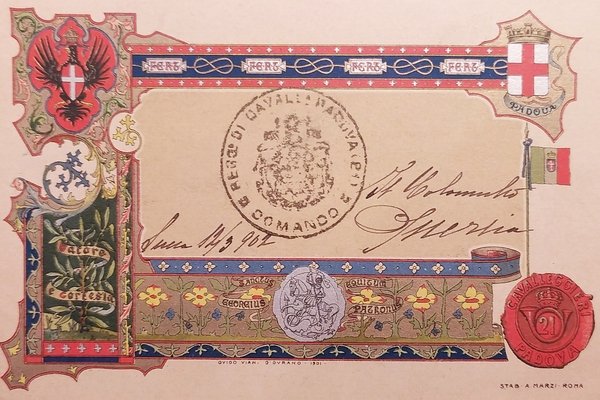 FERT FERT FERT FERT
PADOVA
REGG.to DI CAVALL. PADOVA (21)
COMANDO
Il Colonnello
Lucca 14/3 902
Valore
e cortesia
SANCTUS GEORGIUS
EQUITUM PATRONUS
CAVALLEGGIERI
21
PADOVA
GUIDO VIAN. D DURANO - 1901
STAB. A. MARZI - ROMA